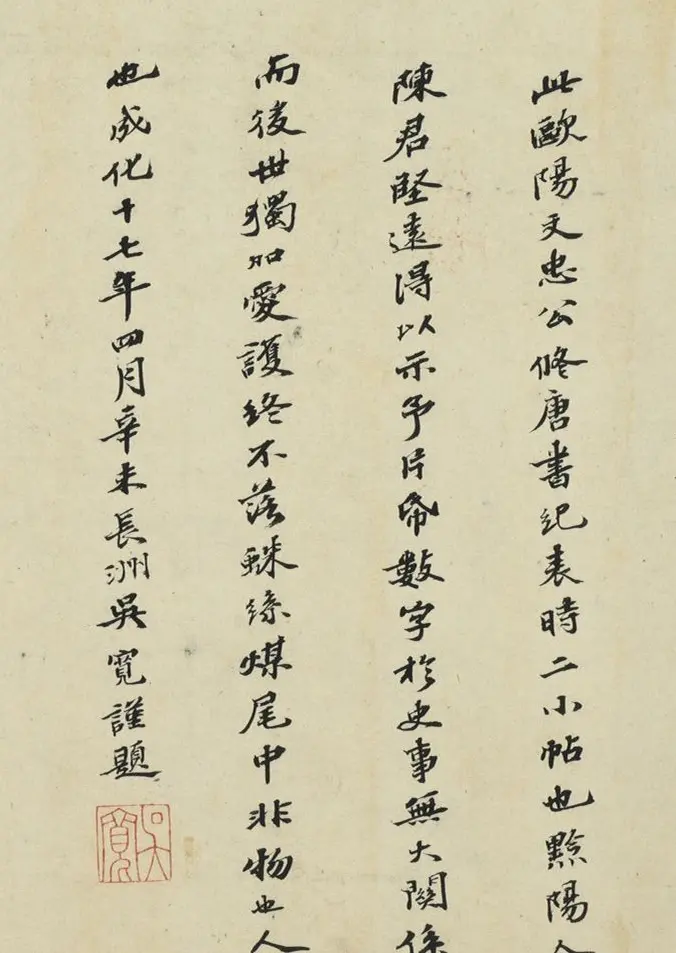 此歐陽文忠公脩唐書紀表時二小帖也黔陽
陳君堅遠得以示予片帋數字於史事無大關係
而後世獨加愛護終不落蛛絲煤尾中非物也人
也成化十七年四月辛未長洲吳寬謹題
吳寬